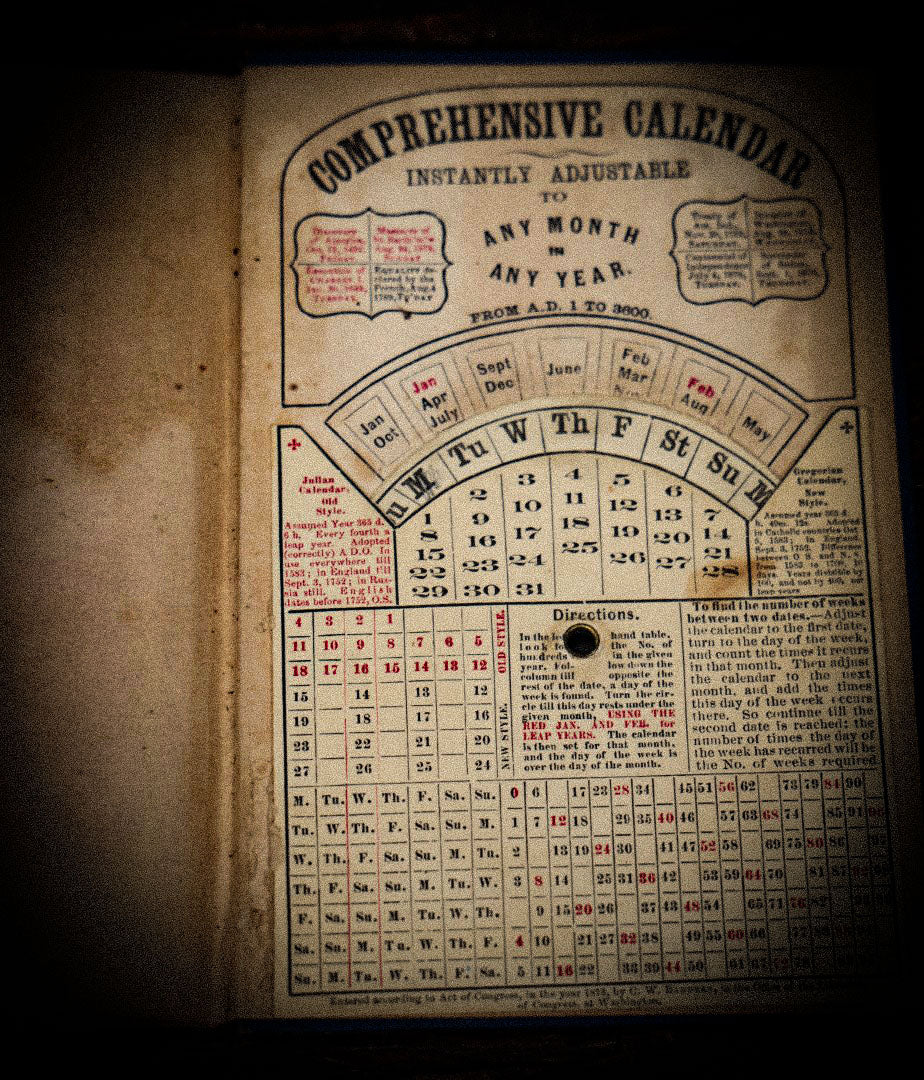 COMPREHENSIVE CALENDAR
INSTANTLY ADJUSTABLE
TO
ANY MONTH
IN
ANY YEAR.
FROM A.D. 1 TO 3600.
Discovery
of America,
Oct. 12, 1492,
FRIDAY.
Massacre of
St. Barth'm'w
Aug. 24, 1572,
SUNDAY
Execution of
Charles I.
Jan. 30, 1649,
TUESDAY.
Jan
Oct
Jan
Apr
July
Sept
Dec
June
Feb
Mar
Nov
Feb
Aug
May
u M Tu W Th F St Su M
1 2 3 4 5 6 7
8 9 10 11 12 13 14
15 16 17 18 19 20 21
22 23 24 25 26 27 28
29 30 31
Julian
Calendar,
Old
Style.
Assumed Year 365 d.
6 h. Every fourth a
leap year. Adopted
(correctly) A.D.O. In
use everywhere till
1583; in England till
Sept. 3, 1752; in Rus-
sia still. English
dates before 1752, O.S.
Gregorian
Calendar,
New
Style.
4 3 2 1
11 10 9 8 7 6 5
18 17 16 15 14 13 12
15 14 13 12
19 18 17 16
23 22 21 20
27 26 25 24
OLD STYLE.
NEW STYLE.
Directions.
In the left hand table,
look for the No. of
hundreds in the given
year. Follow down the
column till opposite the
rest of the date, a day of the
week is found. Turn the cir-
cle till this day rests under the
given month, USING THE
RED JAN. AND FEB. for
LEAP YEARS. The calendar
is then set for that month,
and the day of the week is
over the day of the month.
To find the number of weeks
between two dates.—Adjust
the calendar to the first date,
turn to the day of the week,
and count the times it recurs
in that month. Then adjust
the calendar to the next
month, and add the times
this day of the week occurs
there. So continue till the
second date is reached; the
number of times the day of
the week has recurred will be
the No. of weeks required
M. Tu. W. Th. F. Sa. Su. 0 6 17 23 28 34 45 51 56 62 73 79 84 90
Tu. W. Th. F. Sa. Su. M. 1 7 12 18 29 35 40 46 57 63 68 74 85 91
W. Th. F. Sa. Su. M. Tu. 2 13 19 24 30 41 47 52 58 69 75 80 86
Th. F. Sa. Su. M. Tu. W. 3 8 14 25 31 36 42 53 59 64 70 81 87
F. Sa. Su. M. Tu. W. Th. 9 15 20 26 37 43 48 54 65 71 76
Sa. Su. M. Tu. W. Th. F. 4 10 21 27 32 38 49 55 60 66
Su. M. Tu. W. Th. F. Sa. 5 11 16 22 33 39 44 50 61
Entered according to Act of Congress, in the year by G. W.
of Congress, at Washington.